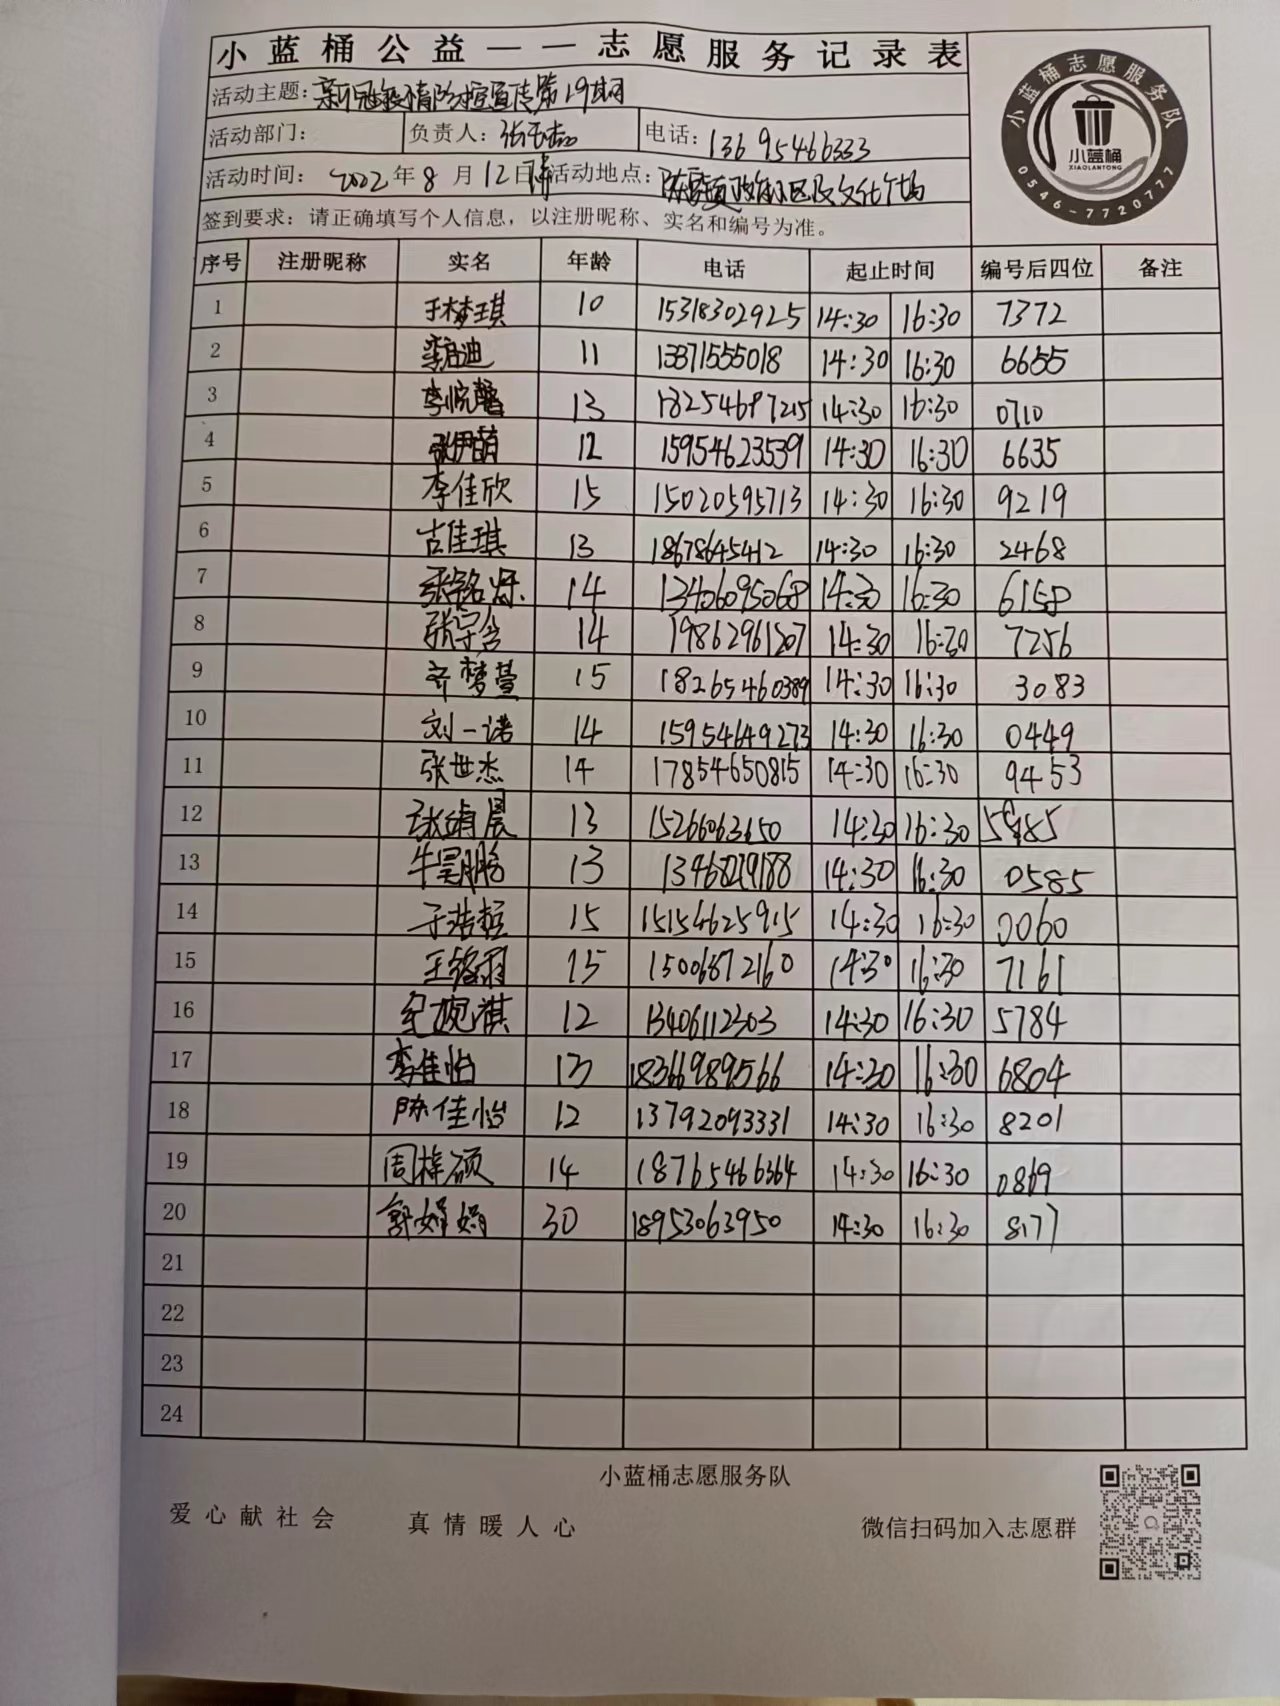 小蓝桶公益——志愿服务记录表
活动主题：新冠疫情防控宣传第19期
活动部门： 负责人： 电话：13695466333
活动时间：2022年8月12日 活动地点：政府小区及文化广场
签到要求：请正确填写个人信息，以注册昵称、实名和编号为准。
小蓝桶志愿服务队
小蓝桶
XIAOLANTONG
0546-7720777
序号 注册昵称 实名 年龄 电话 起止时间 编号后四位 备注
1 于梦琪 10 15318302925 14:30 16:30 7372
2 李启迪 11 13371555018 14:30 16:30 6655
3 李悦馨 13 18254687215 14:30 16:30 0710
4 张尹萌 12 15954623539 14:30 16:30 6635
5 李佳欣 15 15020595713 14:30 16:30 9219
6 古佳琪 13 18678645412 14:30 16:30 2468
7 张铭烁 14 13406095068 14:30 16:30 6158
8 张宇含 14 19862961207 14:30 16:30 7256
9 齐梦萱 15 18265460389 14:30 16:30 3083
10 刘一诺 14 15954649273 14:30 16:30 0449
11 张世杰 14 17854650815 14:30 16:30 9453
12 张靖晨 13 15266063650 14:30 16:30
13 牛昊鹏 13 14:30 16:30 0585
14 于浩哲 15 15154625915 14:30 16:30 0060
15 15 15006872160 14:30 16:30 7161
16 12 13406112303 14:30 16:30 5784
17 李佳怡 13 18366989566 14:30 16:30 6804
18 陈佳怡 12 13792093331 14:30 16:30 8201
19 周梓硕 14 18765466364 14:30 16:30 0869
20 郭娟娟 30 18953063950 14:30 16:30 8177
21
22
23
24
小蓝桶志愿服务队
爱心献社会 真情暖人心 微信扫码加入志愿群